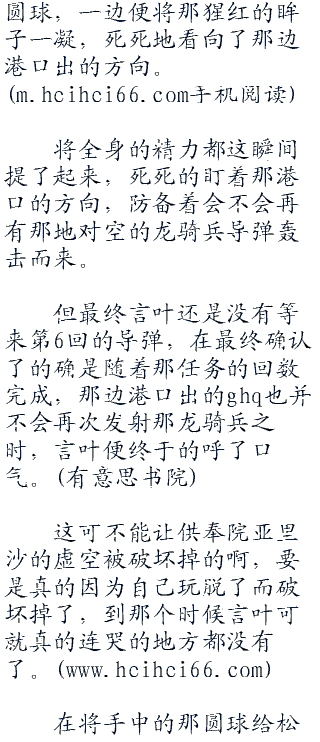 圆球，一边便将那猩红的眸
子一凝，死死地看向了那边
港口出的方向。
(m.hcihci66.com手机阅读)
将全身的精力都这瞬间
提了起来，死死的盯着那港
口的方向，防备着会不会再
有那地对空的龙骑兵导弹轰
击而来。
但最终言叶还是没有等
来第6回的导弹，在最终确认
了的确是随着那任务的回数
完成，那边港口出的ghq也并
不会再次发射那龙骑兵之
时，言叶便终于的呼了口
气。(有意思书院)
这可不能让供奉院亚里
沙的虚空被破坏掉的啊，要
是真的因为自己玩脱了而破
坏掉了，到那个时候言叶可
就真的连哭的地方都没有
了。(www.hcihci66.com)
在将手中的那圆球给松